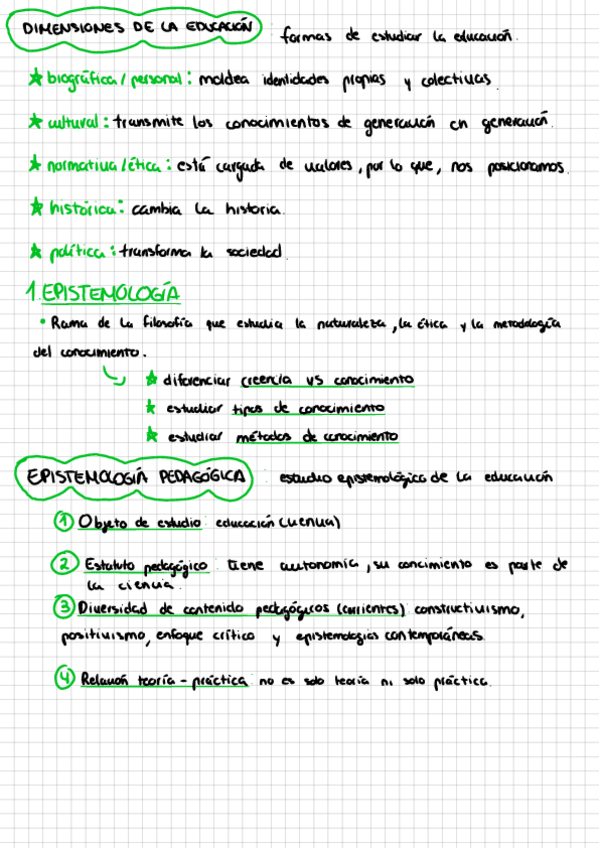 DIMENSIONES DE LA EDUCACIÓN : formas de estudiar la educación.
★ biográfica / personal : moldea identidades propias y colectivas.
★ cultural : transmite los conocimientos de generación en generación.
★ normativa / ética : está cargada de valores, por lo que, nos posicionamos.
★ histórica : cambia la historia.
★ política : transforma la sociedad.
1. EPISTEMOLOGÍA
• Rama de la filosofía que estudia la naturaleza, la ética y la metodología
del conocimiento.
★ diferenciar creencia vs conocimiento
★ estudiar tipos de conocimiento
★ estudiar métodos de conocimiento
EPISTEMOLOGÍA PEDAGÓGICA : estudio epistemológico de la educación
1 Objeto de estudio : educación
2 Estatuto pedagógico : tiene autonomía, su concimiento es parte de
la ciencia.
3 Diversidad de contenido pedagógicos (corrientes) : constructivismo,
positivismo, enfoque crítico y epistemologías contemporáneas.
4 Relación teoría - práctica : no es solo teoría ni solo práctica.